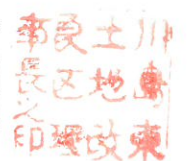 川島東
土地改
良区理
事長之印